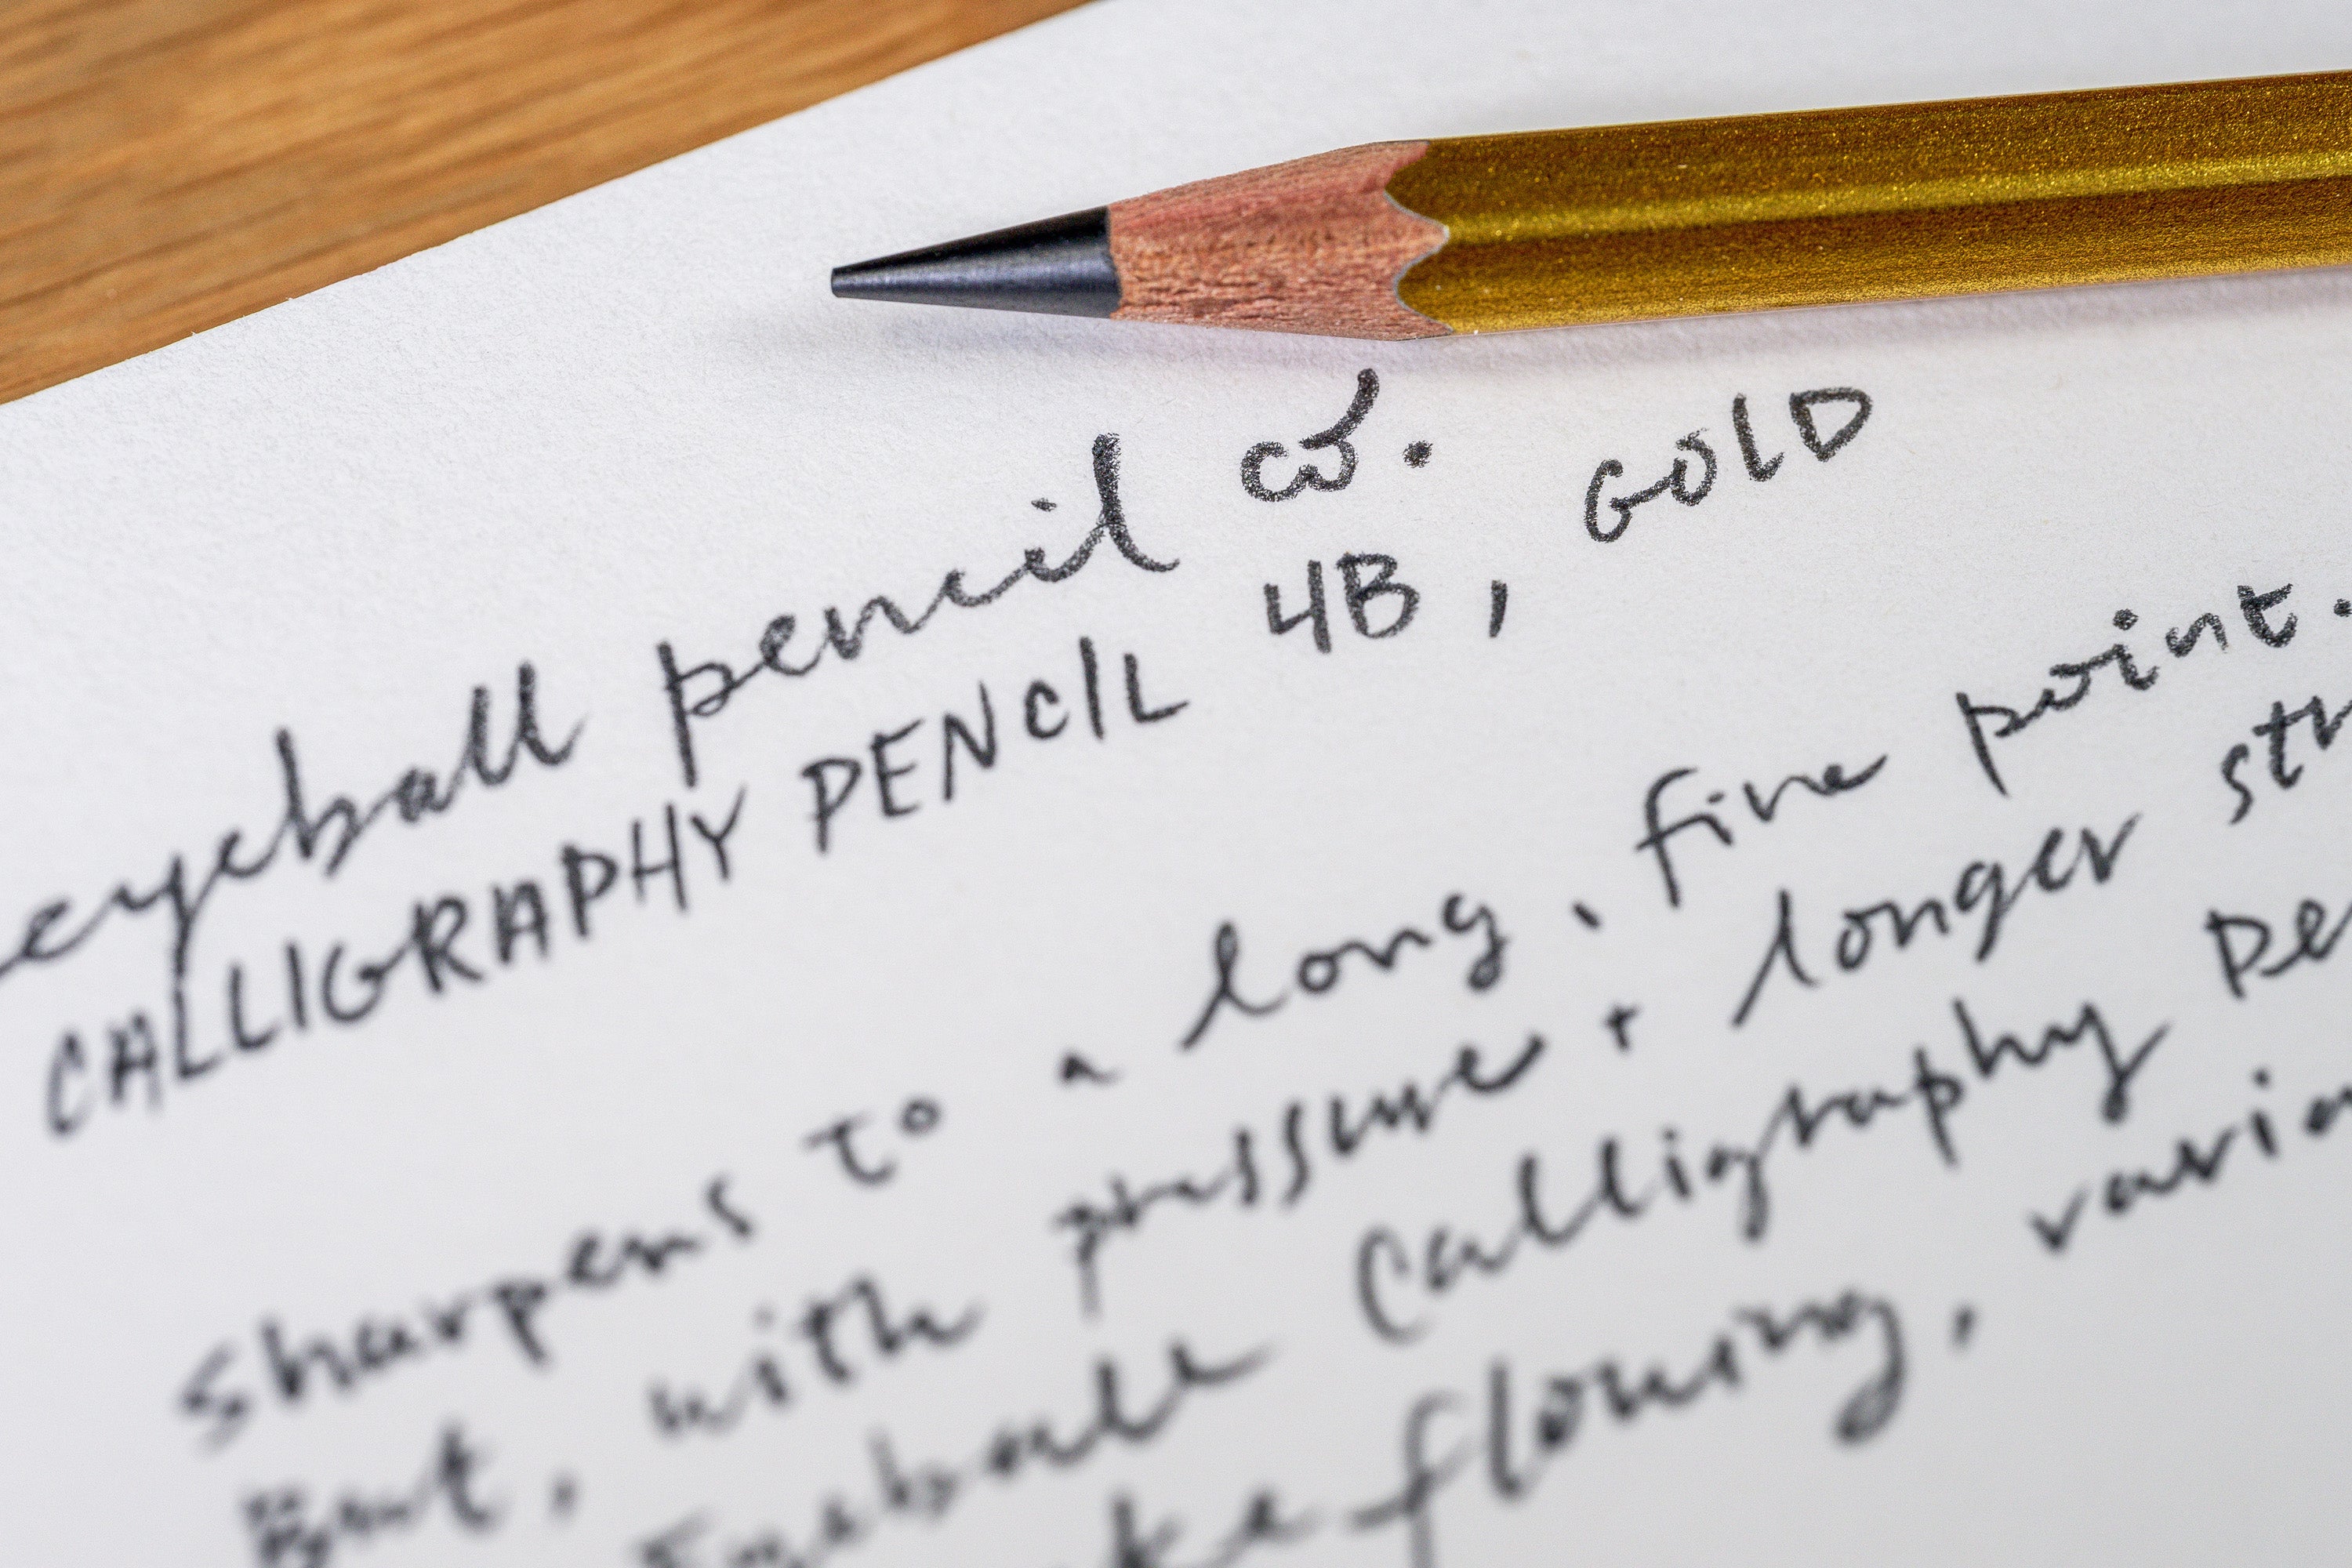 eyeball pencil co.
CALLIGRAPHY PENCIL 4B, GOLD
Sharpens to a long, fine point.
But, with pressure + longer
Eyeball Calligraphy
flowing,